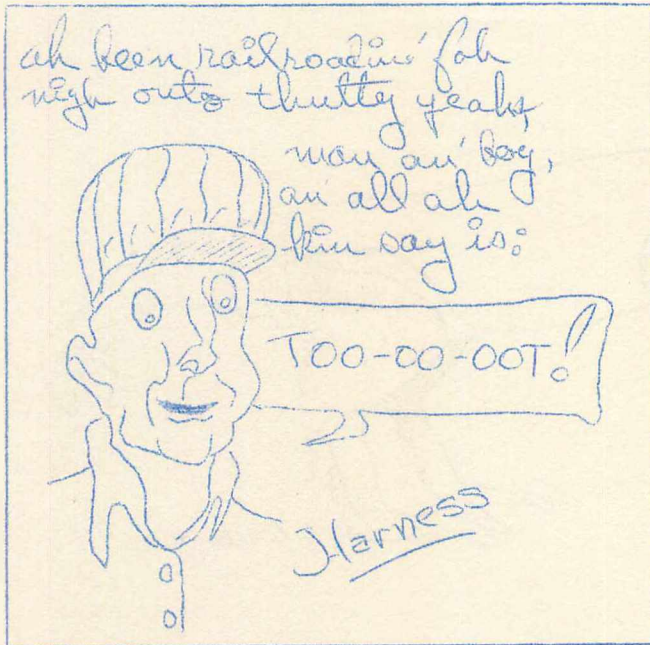 ah been railroadin' foh
nigh onta thutty yeahs,
man an' boy,
an' all ah
kin say is:
TOO-OO-OOT!
Harness